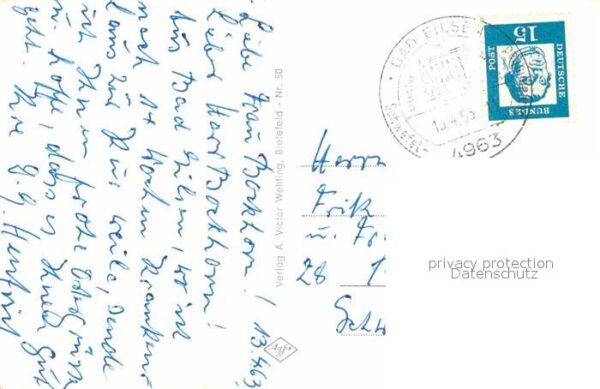 13.4.63
Liebe Frau Bockhorn!
Lieber Herr Bockhorn!
Aus Bad Eilsen, wo ich
nach 14 Wochen Kranken
haus zur Kur weile, sende
ich Ihnen frohe Ostergrüße
u. hoffe, dass es Ihnen gut
geht. Ihre
Verlag A. Victor Wehling, Bielefeld - Nr. 50
BAD EILSEN
13.4.63
4963
15
DEUTSCHE
BUNDES
POST
Herrn
Fritz
u. Fr
28
privacy protection
Datenschutz